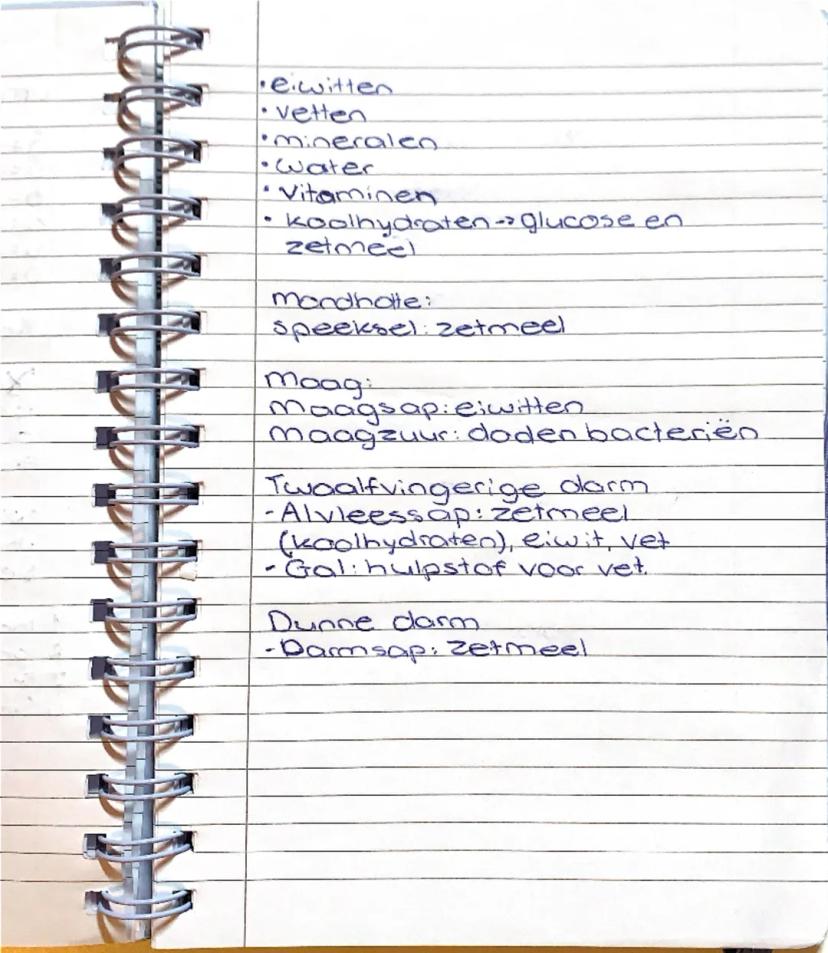 • eiwitten
• vetten
• mineralen
• water
• vitaminen
• koolhydraten -> glucose en
zetmeel
Mondholte:
speeksel: zetmeel
Maag:
Maagsap: eiwitten
Maagzuur: doden bacteriën
Twaalfvingerige darm
- Alvleessap: zetmeel
(koolhydraten), eiwit, vet
- Gal: hulpstof voor vet.
Dunne darm
- Darmsap: zetmeel